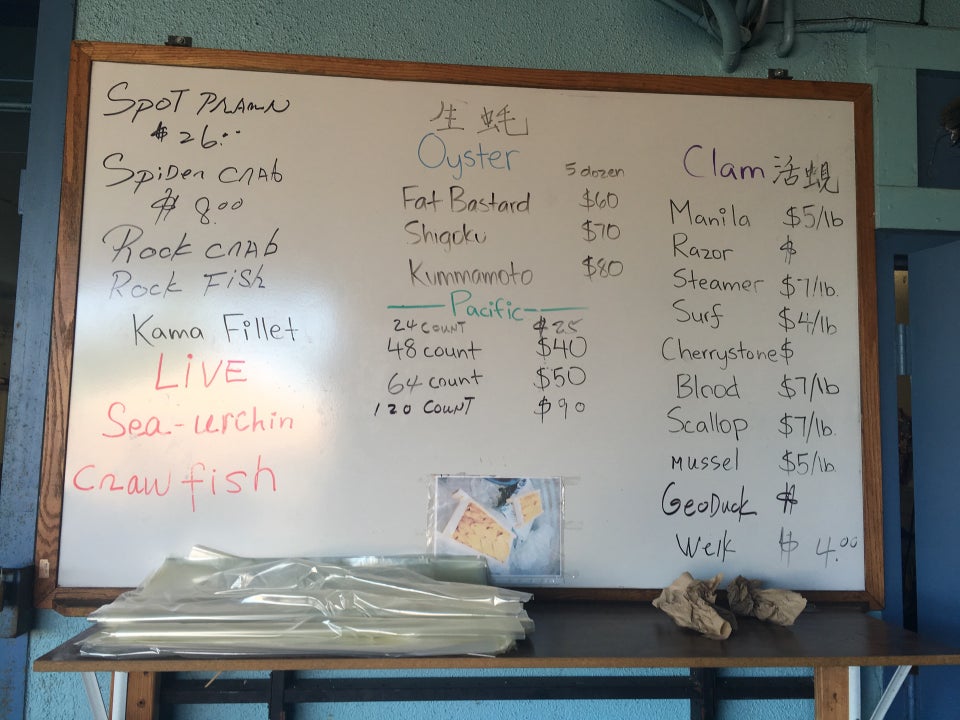 SPOT PRAWN
$ 26.00
SPIDER CRAB
$ 8.00
ROCK CRAB
ROCK FISH
Kama Fillet
LIVE
Sea-urchin
Crawfish
生蚝
Oyster
5 dozen
Fat Bastard $60
Shigoku $70
Kummamoto $80
Pacific
24 COUNT $25
48 count $40
64 count $50
120 COUNT $90
Clam 活蜆
Manila $5/lb
Razor $
Steamer $7/lb.
Surf $4/lb
Cherrystone $
Blood $7/lb
Scallop $7/lb.
MUSSEL $5/lb
GeoDuck $
Welk $ 4.00